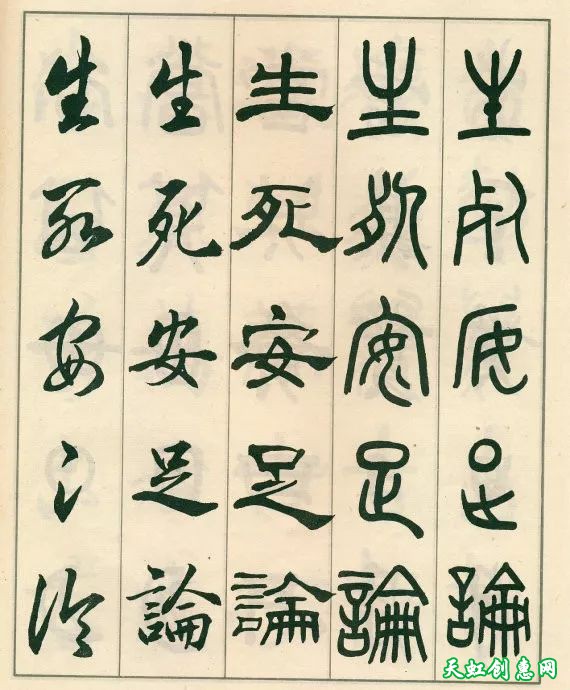 生死安足論
生死安足論
生死安足論
生死安足論
生死安足論
天虹创惠网